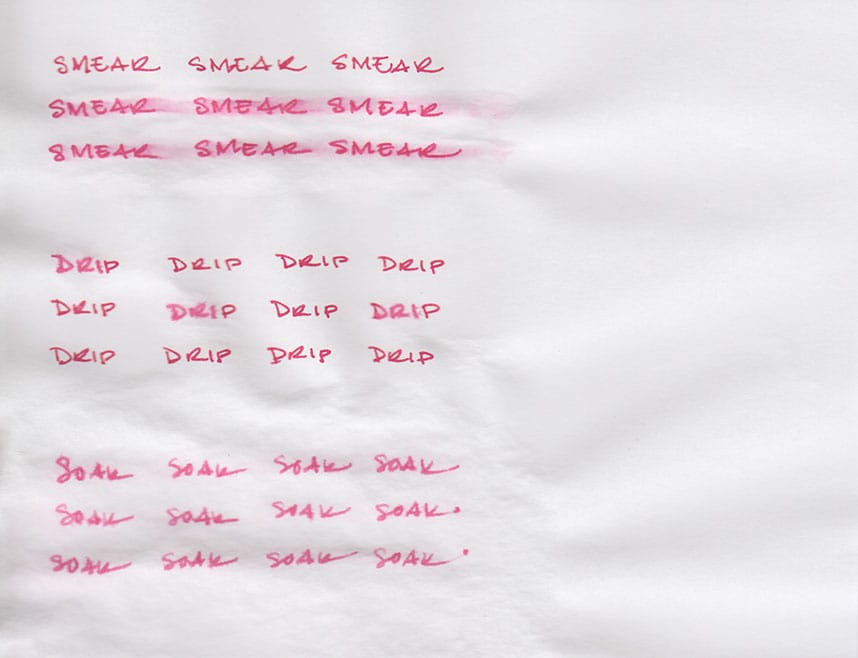 SMEAR SMEAR SMEAR
SMEAR SMEAR SMEAR
SMEAR SMEAR SMEAR
DRIP DRIP DRIP DRIP
DRIP DRIP DRIP DRIP
DRIP DRIP DRIP DRIP
SOAK SOAK SOAK SOAK
SOAK SOAK SOAK SOAK.
SOAK SOAK SOAK SOAK.